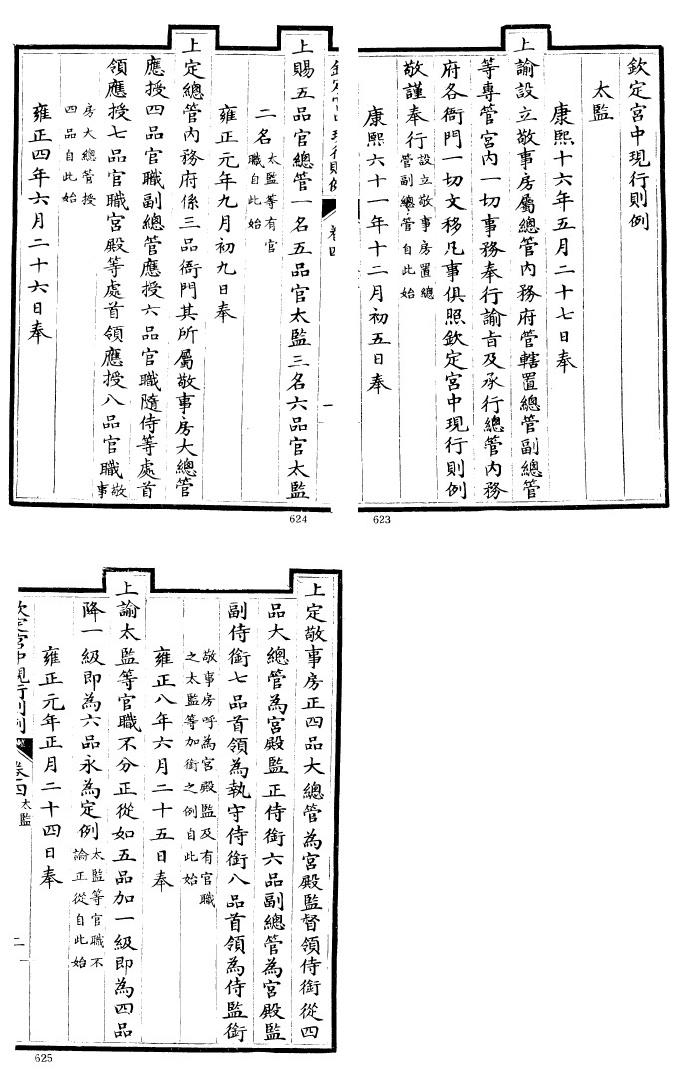 欽定宮中現行則例
太監
康熙十六年五月二十七日奉
上諭設立敬事房屬總管內務府管轄置總管副總管
等專管宮內一切事務奉行諭旨及承行總管內務
府各衙門一切文移凡事俱照欽定宮中現行則例
敬謹奉行設立敬事房置總
管副總管自此始
康熙六十一年十二月初五日奉
623
欽定宮中現行則例 卷四 一
上賜五品官總管一名五品官太監三名六品官太監
二名太監等有官
職自此始
雍正元年九月初九日奉
上定總管內務府係三品衙門其所屬敬事房大總管
應授四品官職副總管應授六品官職隨侍等處首
領應授七品官職宮殿等處首領應授八品官職敬
事
房大總管授
四品自此始
雍正四年六月二十六日奉
624
上定敬事房正四品大總管為宮殿監督領侍銜從四
品大總管為宮殿監正侍銜六品副總管為宮殿監
副侍銜七品首領為執守侍銜八品首領為侍監銜
敬事房呼為宮殿監及有官職
之太監等加銜之例自此始
雍正八年六月二十五日奉
上諭太監等官職不分正從如五品加一級即為四品
降一級即為六品永為定例太監等官職不
論正從自此始
雍正元年正月二十四日奉
欽定宮中現行則例 卷四 太監 二
625